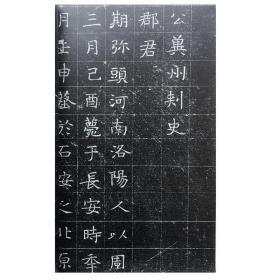 公冀州刺史
郡君
期弥頭河南洛陽人以周
三月己酉薨于長安時年
月壬申墓於石安之北原